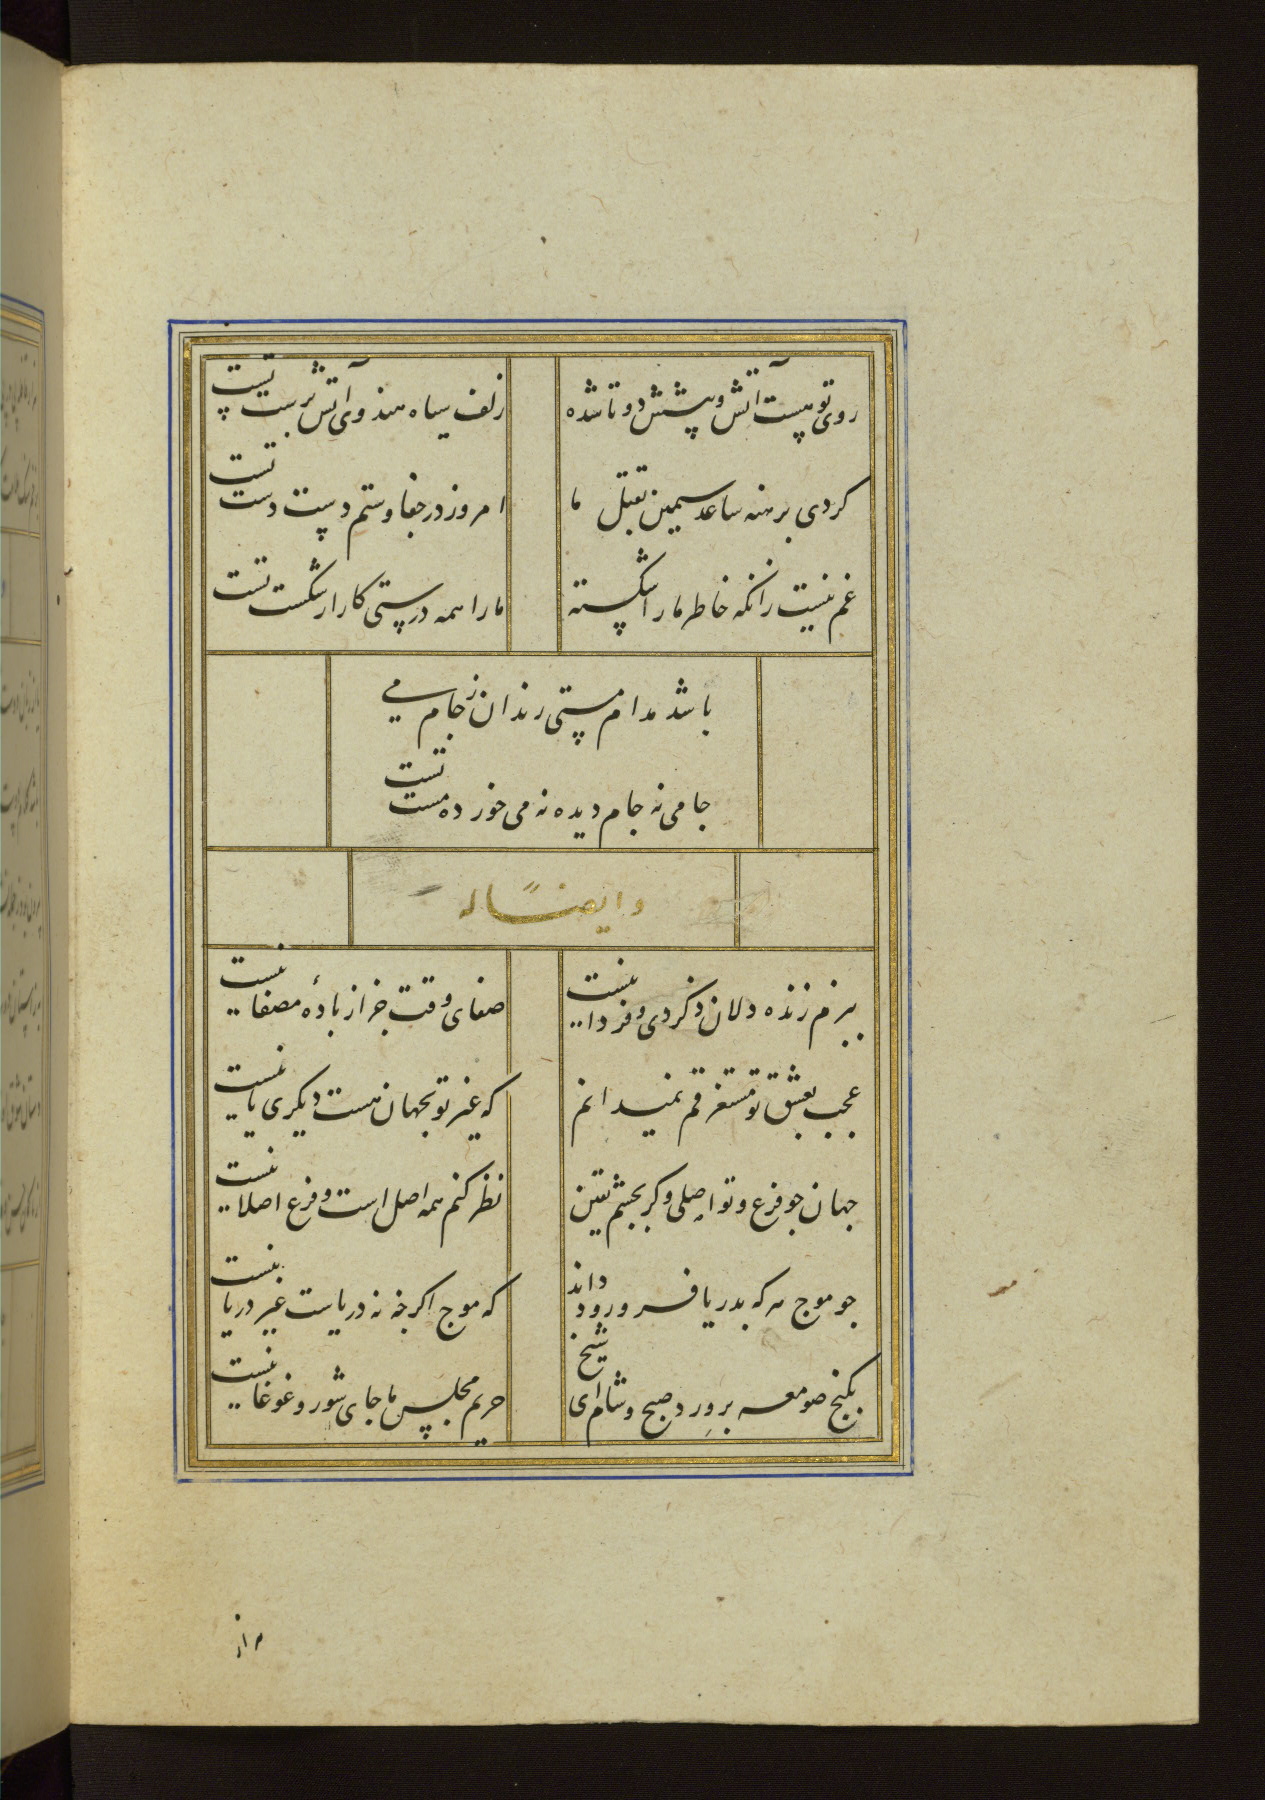 روی تو هست آتش و پیشش دوتا شده
زلف سیاه هندوی آتش پرست تست
کردی برهنه ساعد سیمین بقتل ما
امروز در جفا و ستم دست دست تست
غم نیست زانکه خاطر ما را شکسته
ما را همه درستی کار از شکست تست
باشد مدام مستی رندان ز جام می
جامی نه جام دیده نه می خورده مست تست
و ایضاً له
ببزم زنده دلان ذکر دی و فردا نیست
صفای وقت جز از بادهٔ مصفا نیست
عجب بعشق تو مستغرقم نمیدانم
که غیر تو بجهان هست دیگری یا نیست
جهان جو فرع و تو اصلی و کر بجشم یقین
نظر کنم همه اصل است و فرع اصلا نیست
جو موج هر که بدریا فرو رود داند
که موج اکرجه نه دریاست غیر دریا نیست
بکنج صومعه بر ورد صبح و شام ای شیخ
حریم مجلس ما جای شور و غوغا نیست